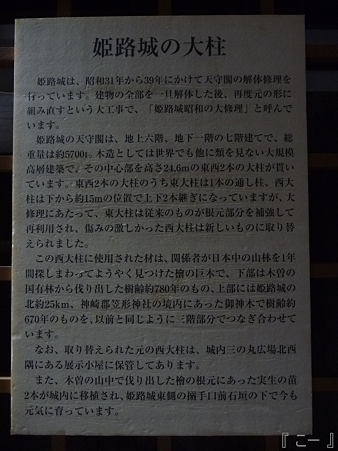 姫路城の大柱
姫路城は、昭和31年から39年にかけて天守閣の解体修理を
行っています。建物の全部を一旦解体した後、再度元の形に
組み直すという大工事で、「姫路城昭和の大修理」と呼んで
います。
姫路城の天守閣は、地上六階、地下一階の七階建てで、総
重量は約5700t。木造としては世界でも他に類を見ない大規模
高層建築で、その中心部を高さ24.6mの東西2本の大柱が貫い
ています。東西2本の大柱のうち東大柱は1本の通し柱、西大
柱は下から約15mの位置で上下2本継ぎになっていますが、大
修理にあたって、東大柱は従来のものが根元部分を補強して
再利用され、傷みの激しかった西大柱は新しいものに取り替
えられました。
この西大柱に使用された材は、関係者が日本中の山林を1年
間探しまわってようやく見つけた檜の巨木で、下部は木曽の
国有林から伐り出した樹齢約780年のもの、上部には姫路城の
北約25km、神崎郡笠形神社の境内にあった御神木で樹齢約
670年のものを、以前と同じように三階部分でつなぎ合わせて
います。
なお、取り替えられた元の西大柱は、城内三の丸広場北西
隅にある展示小屋に保管してあります。
また、木曽の山中で伐り出した檜の根元にあった実生の苗
2本が城内に移植され、姫路城東側の搦手口前石垣の下で今も
元気に育っています。
『こー』